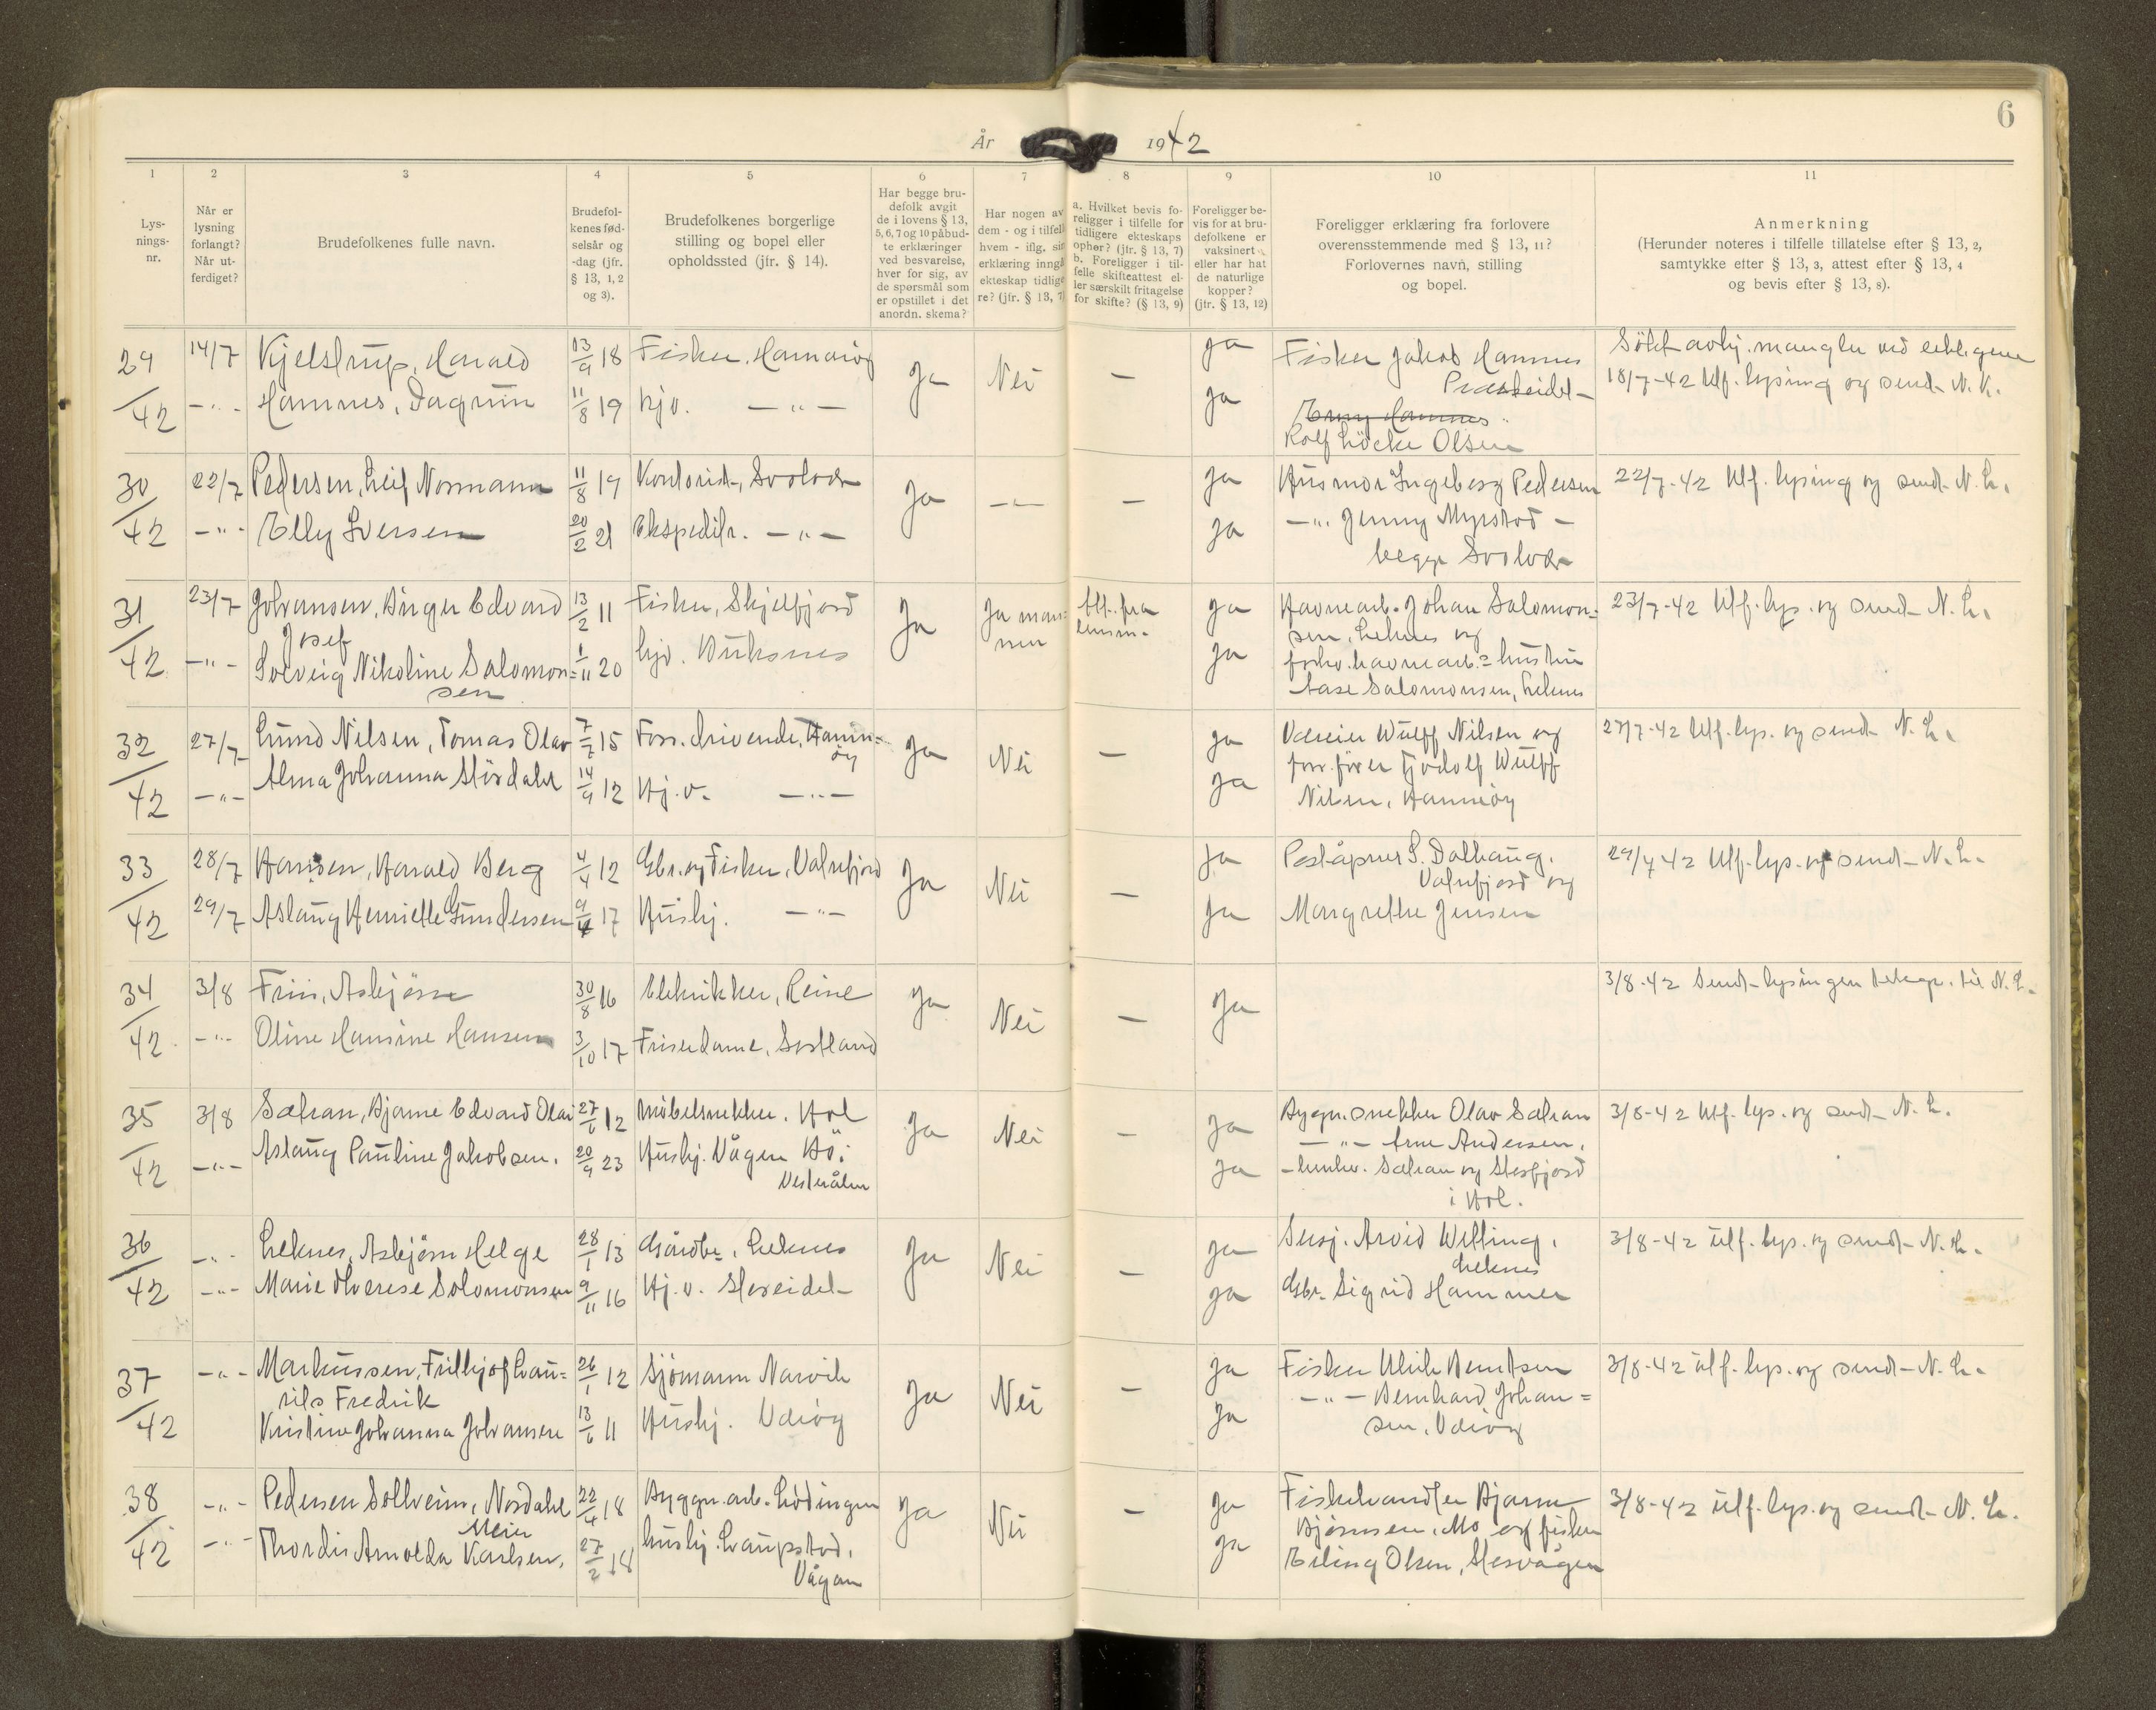 6
År 1942
1 2 3 4 5 6 7 8 9 10 11
Lys-
nings-
nr.
Når er
lysning
forlangt?
Når ut-
ferdiget?
Brudefolkenes fulle navn.
Brudefol-
kenes fød-
selsår og
-dag (jfr.
§ 13, 1, 2
og 3).
Brudefolkenes borgerlige
stilling og bopel eller
opholdssted (jfr. § 14).
Har begge bru-
defolk avgit
de i lovens § 13,
5, 6, 7 og 10 påbud-
te erklæringer
ved besvarelse,
hver for sig, av
de spørsmål som
er opstillet i det
anordn. skema?
Har nogen av
dem - og i tilfell
hvem - iflg. sin
erklæring inngå
ekteskap tidlige
re? (jfr. § 13, 7
a. Hvilket bevis fo-
religger i tilfelle for
tidligere ekteskaps
ophør? (jfr. § 13, 7)
b. Foreligger i til-
felle skifteattest el-
ler særskilt fritagelse
for skifte? (§ 13, 9)
Foreligger be-
vis for at bru-
defolkene er
vaksinert
eller har hat
de naturlige
kopper?
(jfr. § 13, 12)
Foreligger erklæring fra forlovere
overensstemmende med § 13, 11?
Forlovernes navn, stilling
og bopel.
Anmerkning
(Herunder noteres i tilfelle tillatelse efter § 13, 2,
samtykke efter § 13, 3, attest efter § 13, 4
og bevis efter § 13, 8).
29/42 14/7 Kjelstrup, Harald 13/9 18 Fisker, Hamnøy Ja Nei — Ja Fisker Jakob Hamnes
Søkt avhj. mangler ved
-"- Hamnes, Dagrun 11/8 19 hjv. -"- Ja
18/7-42 Utf. lysing og sendt N. L.
Rolf Løcke Olsen
30/42 22/7 Pedersen, Leif Normann 11/8 19 Kontorist, Svolvær Ja -"- — Ja Husmor Ingeborg Pedersen 22/7-42 Utf. lysing og sendt N. L.
-"- Elly Iversen 20/2 21 Ekspeditr. -"- Ja -"- Jenny Myrstad -
begge Svolvær
31/42 23/7 Johansen, Birger Edvard 13/2 11 Fisker, Skjelfjord Ja Ja man- Att. fra Ja Havnearb. Johan Salomon- 23/7-42 Utf. lys. og sendt N. L.
Josef nen lensm. sen, Leknes og
-"- Solveig Nikoline Salomon- 1/11 20 hjv. Buksnes Ja forhv. havnearb. hustru
sen Aase Salomonsen, Leknes
32/42 27/7 Lund Nilsen, Tomas Olav 7/7 15 Forr. drivende, Hamn- Ja Nei — Ja Væreier Wulff Nilsen og 27/7-42 Utf. lys. og sendt N. L.
øy forr.fører Tjodolf Wulff
-"- Alma Johanna Størdahl 14/9 12 Hj.v. -"- Ja Nilsen, Hamnøy
33/42 28/7 Hansen, Harald Berg 4/4 12 Gbr. og Fisker, Valnfjord Ja Nei — Ja Poståpner S. Dalhaug, 29/7 42 Utf. lys. og sendt N. L.
Valnfjord og
29/7 Aslaug Henriette Gundersen 9/4 17 Hushj. -"- Ja Margrethe Jensen
34/42 3/8 Friis, Asbjørn 30/8 16 Elektrikker, Reine Ja Nei — Ja 3/8-42 Sendt lysingen telegr. til N. L.
-"- Oline Hansine Hansen 3/10 17 Friserdame, Sortland
35/42 3/8 Sætran, Bjarne Edvard Olav 27/6 12 Møbelsnekker, Hol Ja Nei — Ja Bygn.snekker Olav Sætran 3/8-42 Utf. lys. og sendt N. L.
-"- Arne Andersen,
-"- Aslaug Pauline Jakobsen. 20/9 23 Hushj. Vågen Bø i Ja - henhv. Sætran og Steffjord
Vesterålen i Hol.
36/42 -"- Leknes, Asbjørn Helge 28/1 13 Gårdbr., Leknes Ja Nei — Ja Arvid Welling, 3/8-42 utf. lys. og sendt N. L.
Leknes
-"- Marie Therese Solomonsen 9/11 16 Hj.v. Storeidet Ja Gbr. Sigrid Hammer
37/42 -"- Markussen, Frithjof Lau- 26/1 12 Sjømann Narvik Ja Nei — Ja Fisker Ulrik Berntsen 3/8-42 utf. lys. og sendt N. L.
rits Fredrik -"- Bernhard Johan-
Kristine Johanna Johansen 13/6 11 Hushj. Værøy Ja sen, Værøy
38/42 -"- Pedersen Sollheim, Nordahl 22/4 18 Byggn.arb. Lødingen Ja Nei — Ja Fiskehandler Bjarne 3/8-42 utf. lys. og sendt N. L.
Meier Bjørnsen, Mo og fisker
-"- Thordis Arnolda Karlsen, 27/2 18 hushj. Laupstad, Ja Erling Olsen, Mosvågen
Vågan